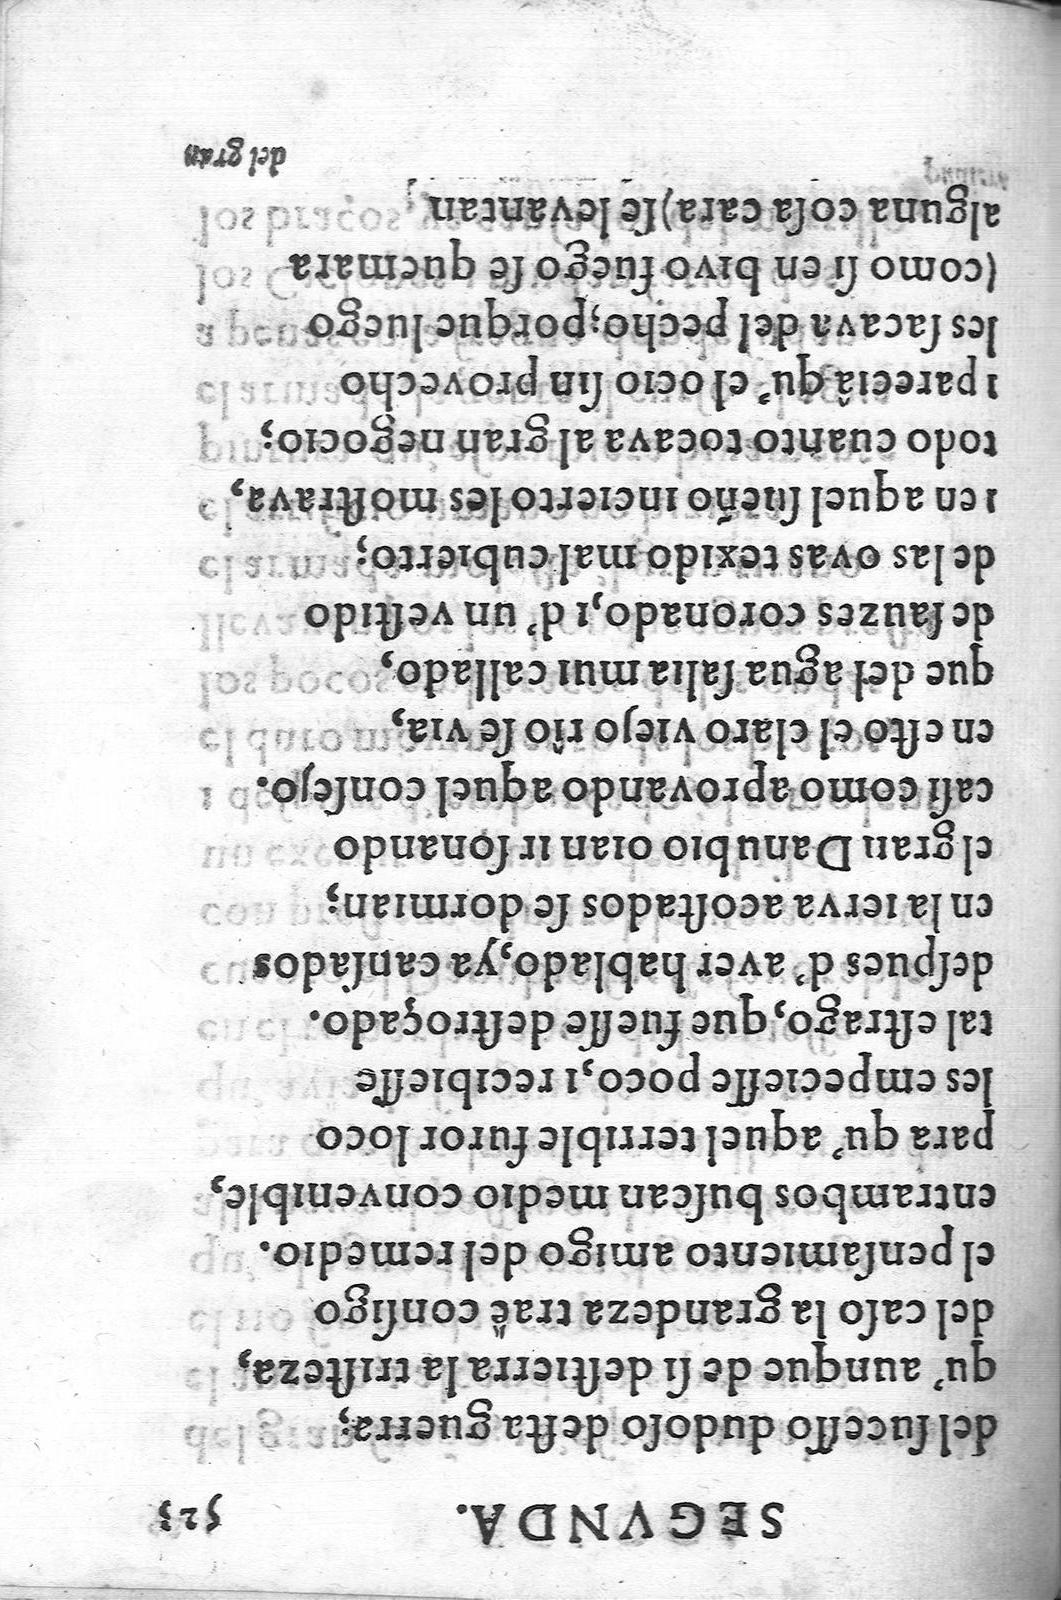 SEGVNDA. 523
del ſuceſſo dudoſo deſta guerra;
qu' aunque de ſi deſtierra la triſteza,
del caſo la grandeza traë conſigo
el penſamiento amigo del remedio.
entrambos buſcan medio convenible,
para qu' aquel terrible furor loco
les empecieſſe poco, i recibieſſe
tal eſtrago, que fueſſe deſtroçado.
deſpues d' aver hablado, ya canſados
en la ierva acoſtados ſe dormian;
el gran Danubio oian ir ſonando
caſi como aprovando aquel conſejo.
en eſto el claro viejo rïo ſe via,
que del agua ſalia mui callado,
de ſauzes coronado, i d' un veſtido
de las ovas texido mal cubierto;
i en aquel ſueño incierto les moſtrava,
todo cuanto tocava al gran negocio;
i pareciä qu' el ocio ſin provecho
les ſacava del pecho; porque luego
(como ſi en bivo fuego ſe quemara
alguna coſa cara) ſe levantan
del gran